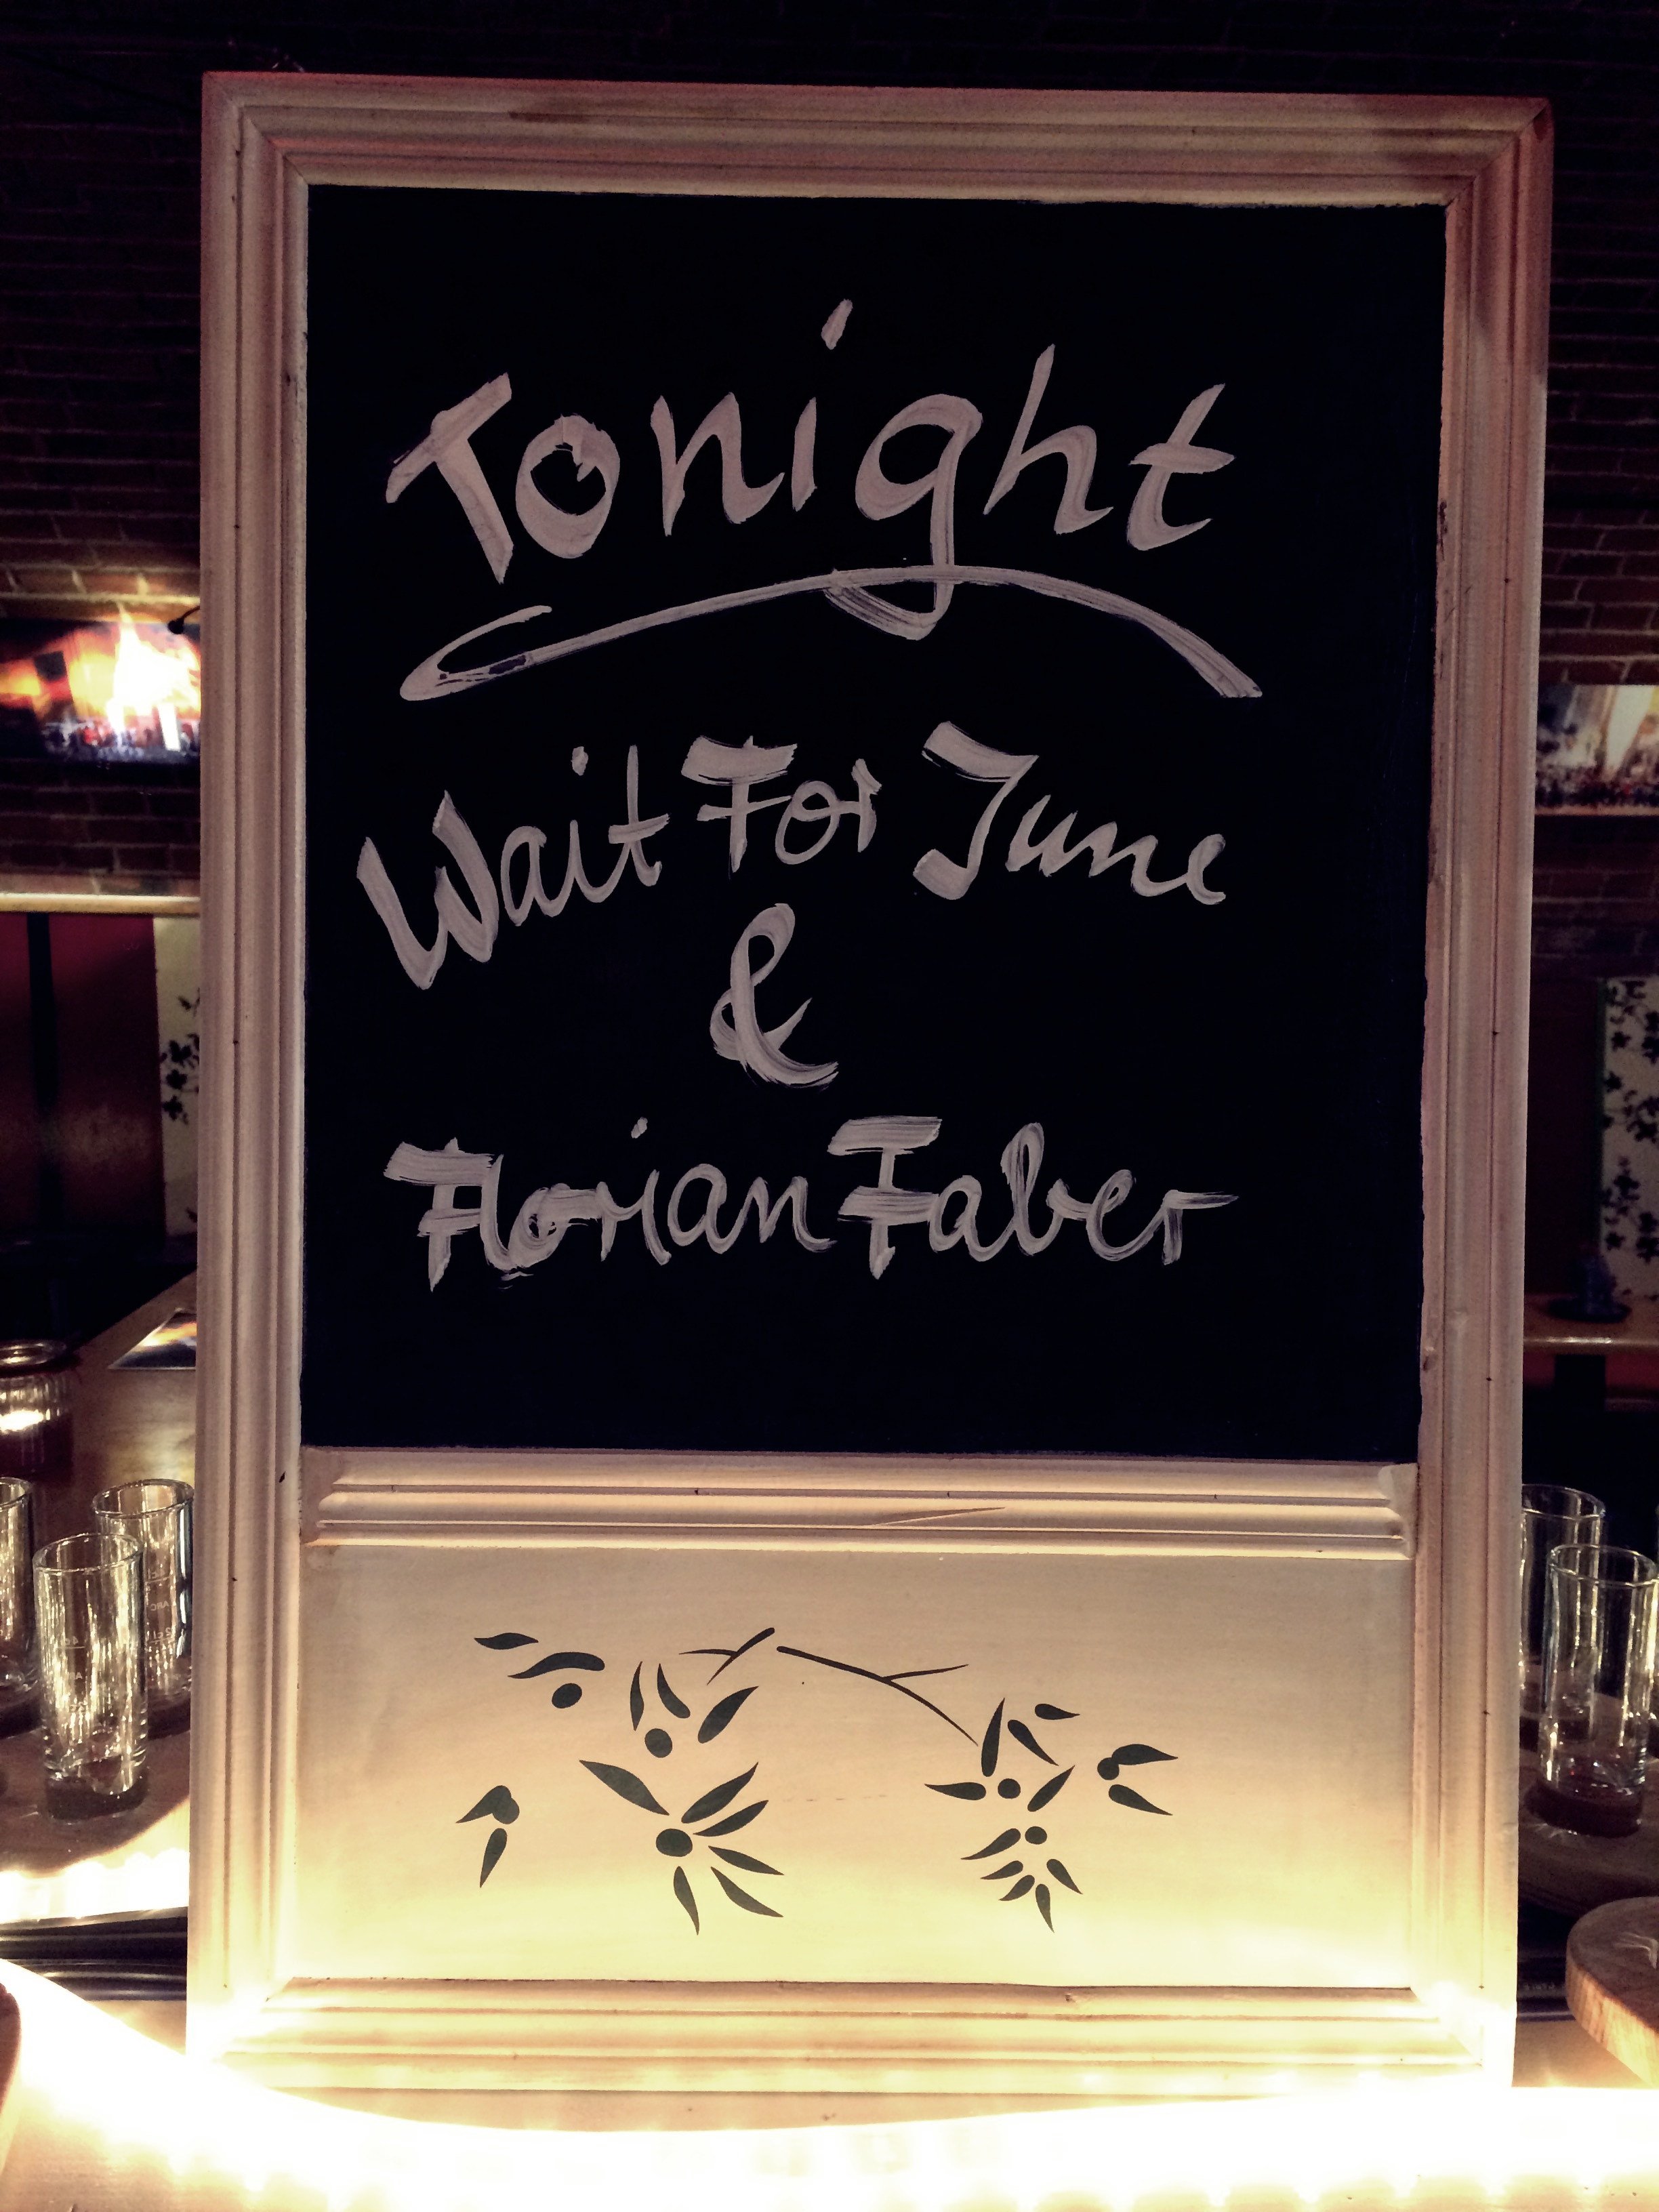 Tonight
Wait For June
&
Florian Faber